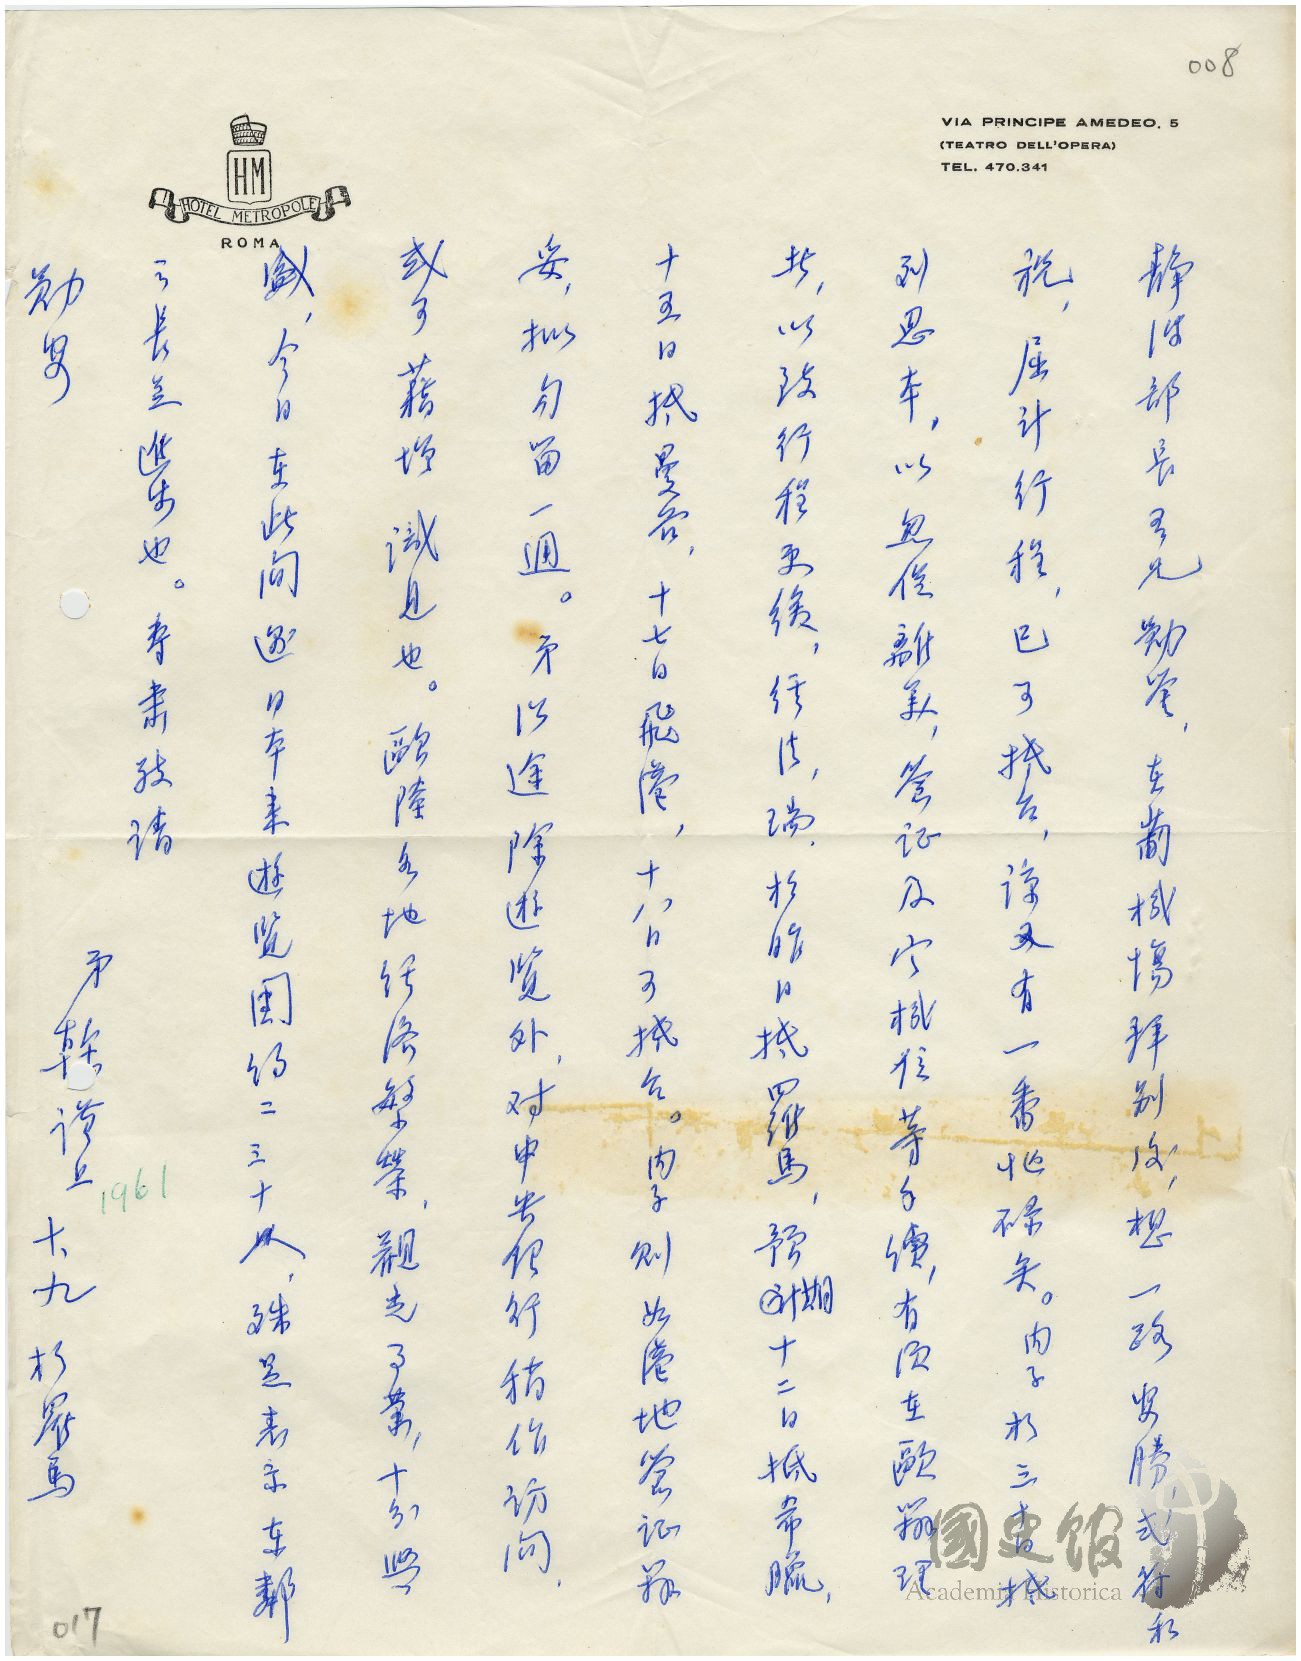 008
VIA PRINCIPE AMEDEO, 5
(TEATRO DELL'OPERA)
TEL. 470.341
HM
HOTEL METROPOLE
ROMA
靜波部長吾兄勛鑒，在蘭機場拜別後，想一路安勝，式符私
祝，屈計行程，已可抵台，諒又有一番忙碌矣。內子於三十日抵
到思本，以忽促離美，簽證及定機位等手續，有須在歐辦理
者，以致行程更緩，經法，瑞，於昨日抵羅馬，預計期十二日抵希臘，
十五日抵曼谷，十七日飛港，十八日可抵台。內子則如港地簽證辦
妥，擬勾留一週。弟沿途除遊覽外，對中央銀行稍作訪問，
或可藉增識見也。歐陸各地經濟繁榮，觀光事業，十分興
盛，今日在此間遇日本來遊覽團約二三十人，殊足表示東鄰
之長足進步也。專肅敬請
勛安
弟 榦 謹上 十、九 於羅馬
1961
017
國史館
Academia Historica